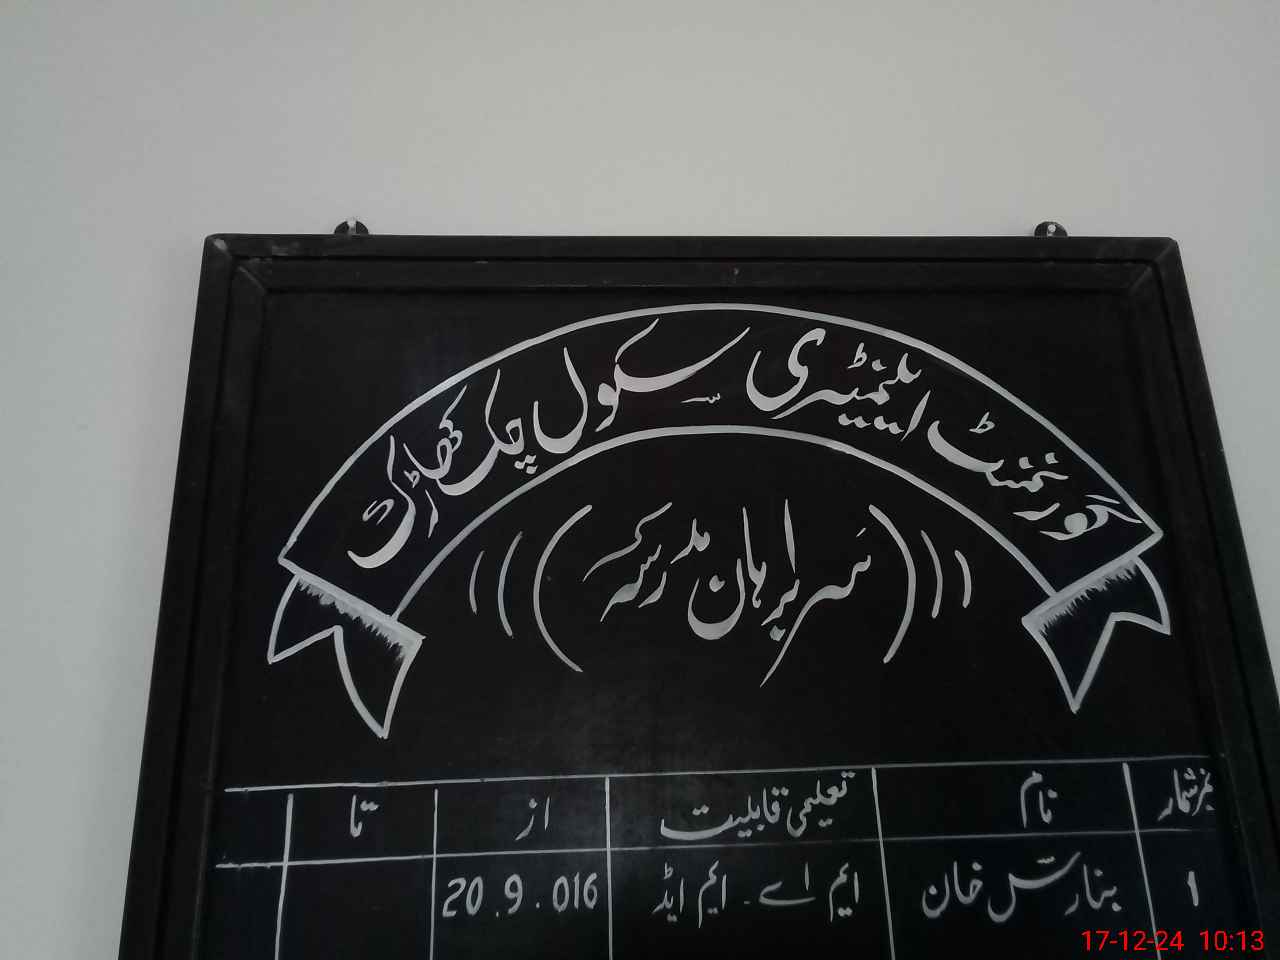 گورنمنٹ ایلیمنٹیری سکول چک کھاڑک
((( سربراہان مدرسہ )))
نمبر شمار نام تعلیمی قابلیت از تا
1 بنارس خان ایم اے - ایم ایڈ 20.9.016
17-12-24 10:13